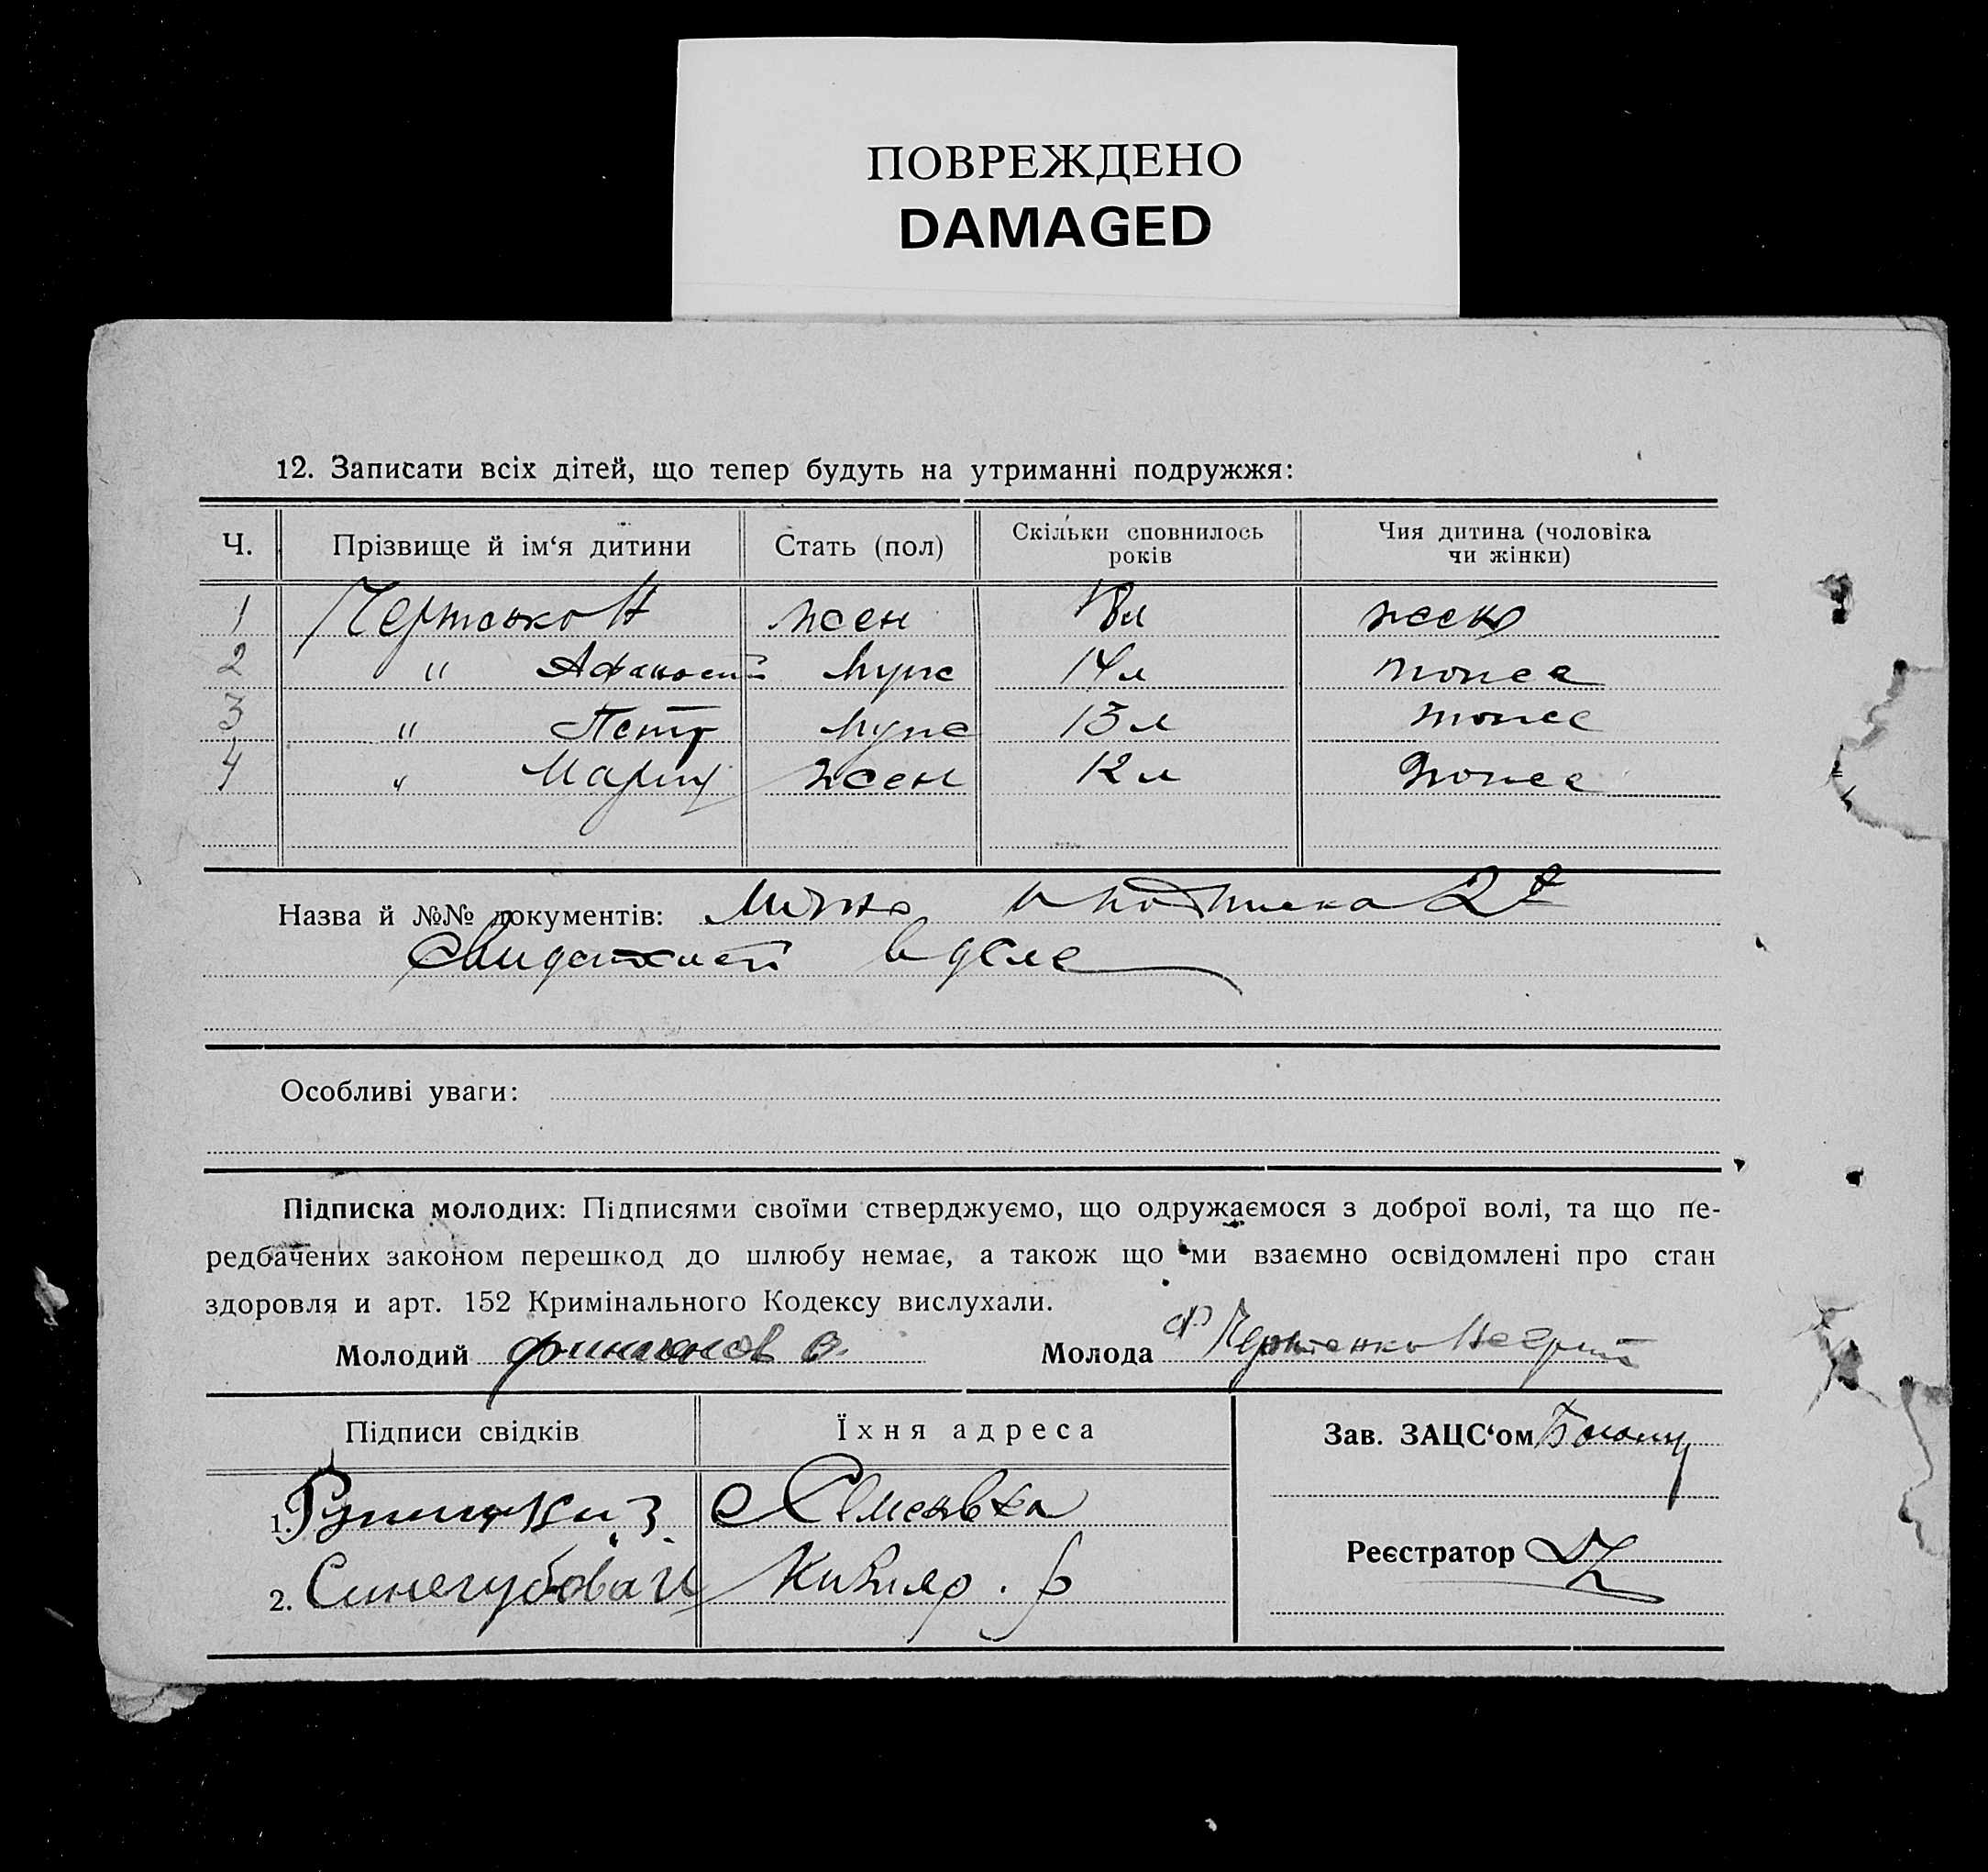 ПОВРЕЖДЕНО
DAMAGED
12. Записати всіх дітей, що тепер будуть на утриманні подружжя:
Ч. Прізвище й ім‘я дитини Стать (пол) Скільки сповнилось років Чия дитина (чоловіка чи жінки)
1 Н жен жен
2 " Афанасий муж 14 л тоже
3 " Петр муж 13 л тоже
4 " Мария жен 12 л тоже
Назва й №№ документів: подписка 2х
свидетелей в деле
Особливі уваги:
Підписка молодих: Підписями своїми стверджуємо, що одружаємося з доброї волі, та що пе-
редбачених законом перешкод до шлюбу немає, а також що ми взаємно освідомлені про стан
здоровля и арт. 152 Кримінального Кодексу вислухали.
Молодий Молода
Підписи свідків Їхня адреса Зав. ЗАЦС‘ом
1. с Семеновка
Реєстратор
2. Синегубова